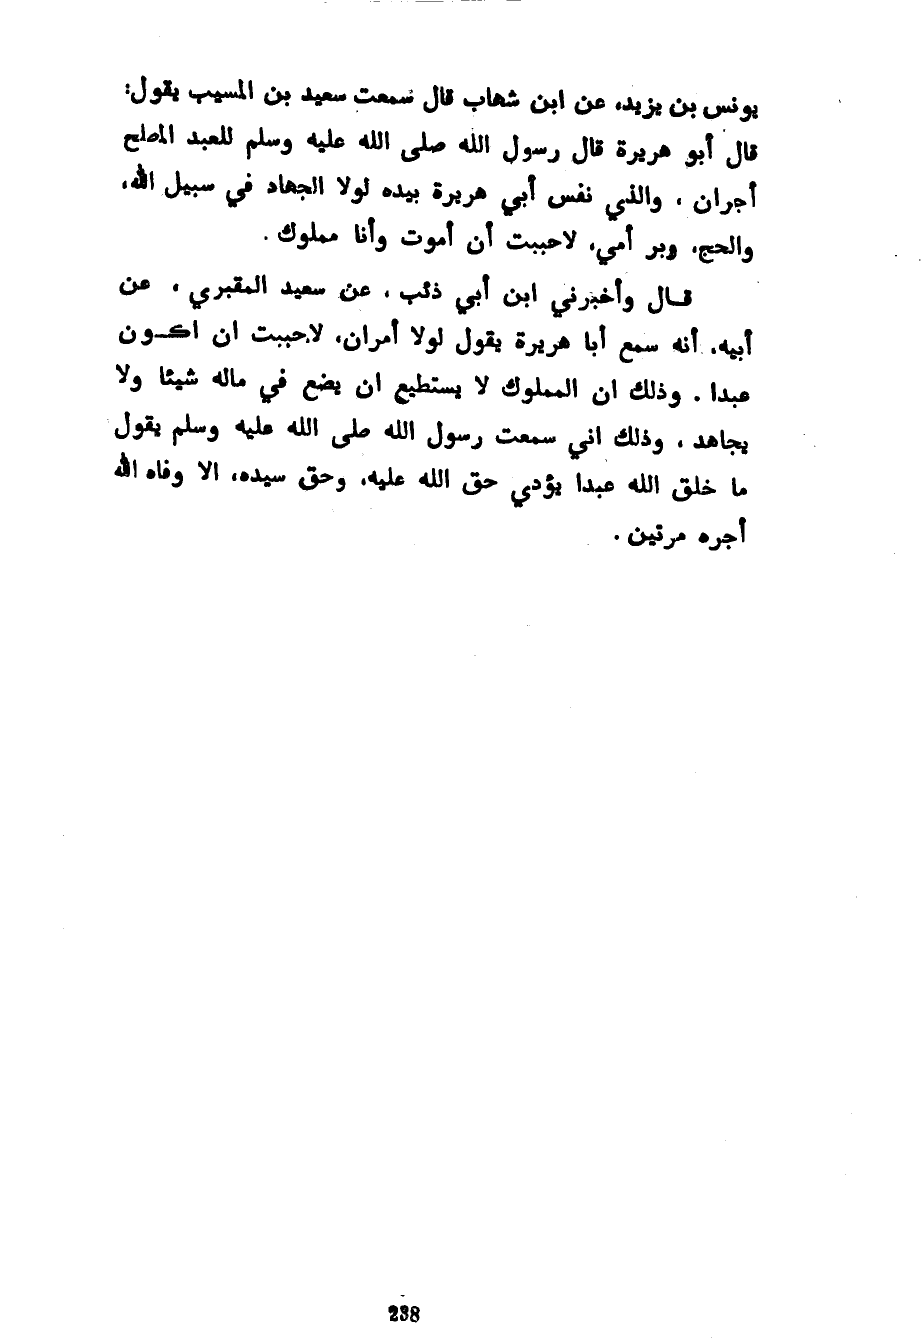 يونس بن يزيد، عن ابن شهاب قال سمعت سعيد بن المسيب يقول:
قال أبو هريرة قال رسول الله صلى الله عليه وسلم للعبد المصلح
أجران ، والذي نفس أبي هريرة بيده لولا الجهاد في سبيل الله،
والحج، وبر أمي، لاحببت أن أموت وأنا مملوك .
قــال وأخبرني ابن أبي ذئب ، عن سعيد المقبري ، عن
أبيه، أنه سمع أبا هريرة يقول لولا أمران، لاحببت ان اكــون
عبدا . وذلك ان المملوك لا يستطيع ان يضع في ماله شيئا ولا
يجاهد ، وذلك اني سمعت رسول الله صلى الله عليه وسلم يقول
ما خلق الله عبدا يؤدي حق الله عليه، وحق سيده، الا وفاه الله
أجره مرتين .
238